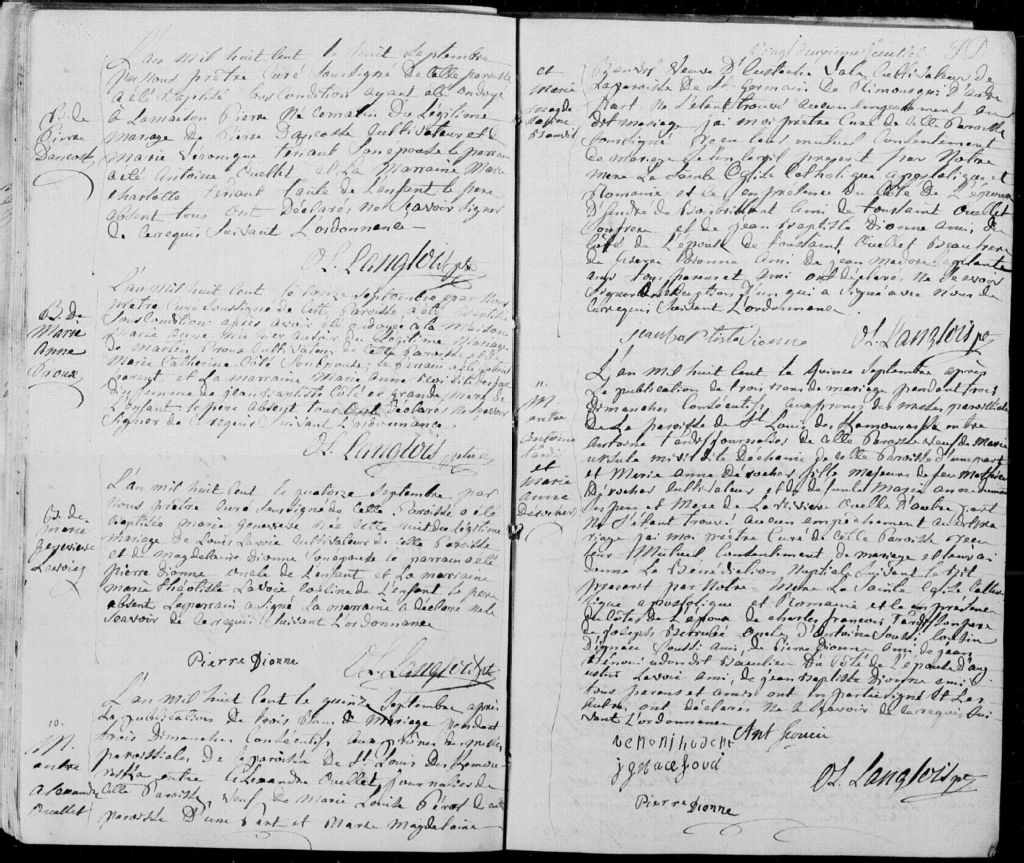 B. de
Pierre
Dancosse
L'an mil huit cent le huit Septembre
par nous prêtre Curé Soussigné de cette paroisse
a été Baptisé sous condition ayant été ondoyé
a la maison Pierre Né ce matin du Légitime
mariage de Pierre Dancosse Cultivateur et de
Marie Véronique Tériaut son epouse le parrain
a été Antoine Ouellet et La Marraine Marie
charlotte Tériaut tante de L'enfant le pere
absent tous ont Déclarés ne Sçavoir signer
de ce requis suivant L'ordonnance
OL. Langlois ptre
B. de
Marie
Anne
Proux
L'an mil huit cent le onze Septembre par Nous
prêtre Curé soussigné de cette Paroisse a été Baptisée
Sous Condition après avoir été ondoyée a la Maison
Marie Anne du Légitime Mariage
de martin Proux Cultivateur de cette Paroisse et de
Marie Catherine Côté Son epouse le parrain a été
et La marraine Marie Anne
femme de jean Baptiste Côté et grande mere de
L'enfant le pere absent tous ont Déclarés ne Sçavoir
Signer de ce requis Suivant L'ordonnance
OL. Langlois ptre
B. de
Marie
Genevieve
Lavoie
L'an mil huit cent le quatorze Septembre par
Nous prêtre Curé soussigné de cette Paroisse a été
Baptisée Marie Genevieve née cette nuit du Légitime
mariage de Louis Lavoie Cultivateur de cette Paroisse
et de magdelaine Dionne Son epouse le parrain a été
pierre Dionne oncle de L'enfant et La marraine
marie Théotiste Lavoie cousine de L'enfant le pere
absent Le parrain a signé La marraine a déclaré ne le
sçavoir de ce requis Suivant L'ordonnance
Pierre Dionne OL. Langlois ptre
10.
M.
entre
Alexandre
Ouellet
L'an mil huit cent le quinze Septembre après
La publication de trois Bans de Mariage pendant
trois Dimanches Consécutifs aux prônes des messes
paroissiales de la paroisse de St Louis des Kamou
raska entre Alexandre Ouellet journalier de
cette Paroisse, Veuf de Marie Louise Pérot de cette
paroisse D'une part et Marie Magdelaine
et
Marie
Magde
laine
Vingt deuxieme feuillet
Veuve D'Eustache Vale Cultivateur de
La paroisse de St. Germain de Rimousqui D'autre
Part ne s'étant trouvé aucun empechement au
dit mariage j'ai moi prêtre Curé de cette Paroisse
soussigné Reçu leur mutuel Consentement
de mariage le suivant prescrit par Notre
mere La Sainte Eglise Catholique apostolique et
Romaine et ce en présence Du côté de L'époux
D'andré de ami de toussaint Ouellet
Son frere et de jean Baptiste Dionne ami, du
côté de L'epouse de toussaint Ouellet Beau frere
de Pierre Dionne ami de jean
tous parens et ami ont déclarés Ne sçavoir
Signer a L'exception D'un qui a Signé avec Nous de
ce requis Suivant L'ordonnance
jean baptiste Dionne OL. Langlois ptre
11.
M.
entre
Antoine
Tardif
et
Marie
anne
Desrocher
L'an mil huit cent le Quinze Septembre après
Le publication de trois Bans de mariage pendant trois
dimanches Consécutifs aux prones des messes paroissiales
de La paroisse de St Louis des Kamouraska entre
Antoine Tardif journalier de cette Paroisse Veuf de Marie
ursule de cette Paroisse D'une part
et Marie Anne Desrocher fille majeure de feu
Desrocher cultivateur et de défunte Marie anne
Ses pere et Mere de La Riviere Ouelle D'autre part
Ne S'étant trouvé Aucun empêchement Audit ma
riage j'ai moi prêtre Curé de Cette Paroisse reçu
leur Mutuel Consentement de mariage et leur ai
donné La Bénédiction Nuptiale Suivant le Rit
prescrit par Notre Mere La Sainte Eglise Catho
lique apostolique et Romaine et ce en présence
du côtés de L'époux de charles francois Tardif son pere
de joseph Bérubé oncle D'antoine Soussi Cousin
D'ignace Soussi ami, de Pierre Dionne ami de jean
Beaulieu Du Côté de L'epouse D'aug
ustin Lavoie ami, de jean Baptiste Dionne ami
tous parens et amis ont en partie signé et Les
autres ont déclarés ne le Sçavoir de ce requis Sui
vant L'ordonnance Ant Soucii
jgnace Soucí
OL. Langlois ptre
Pierre Dionne